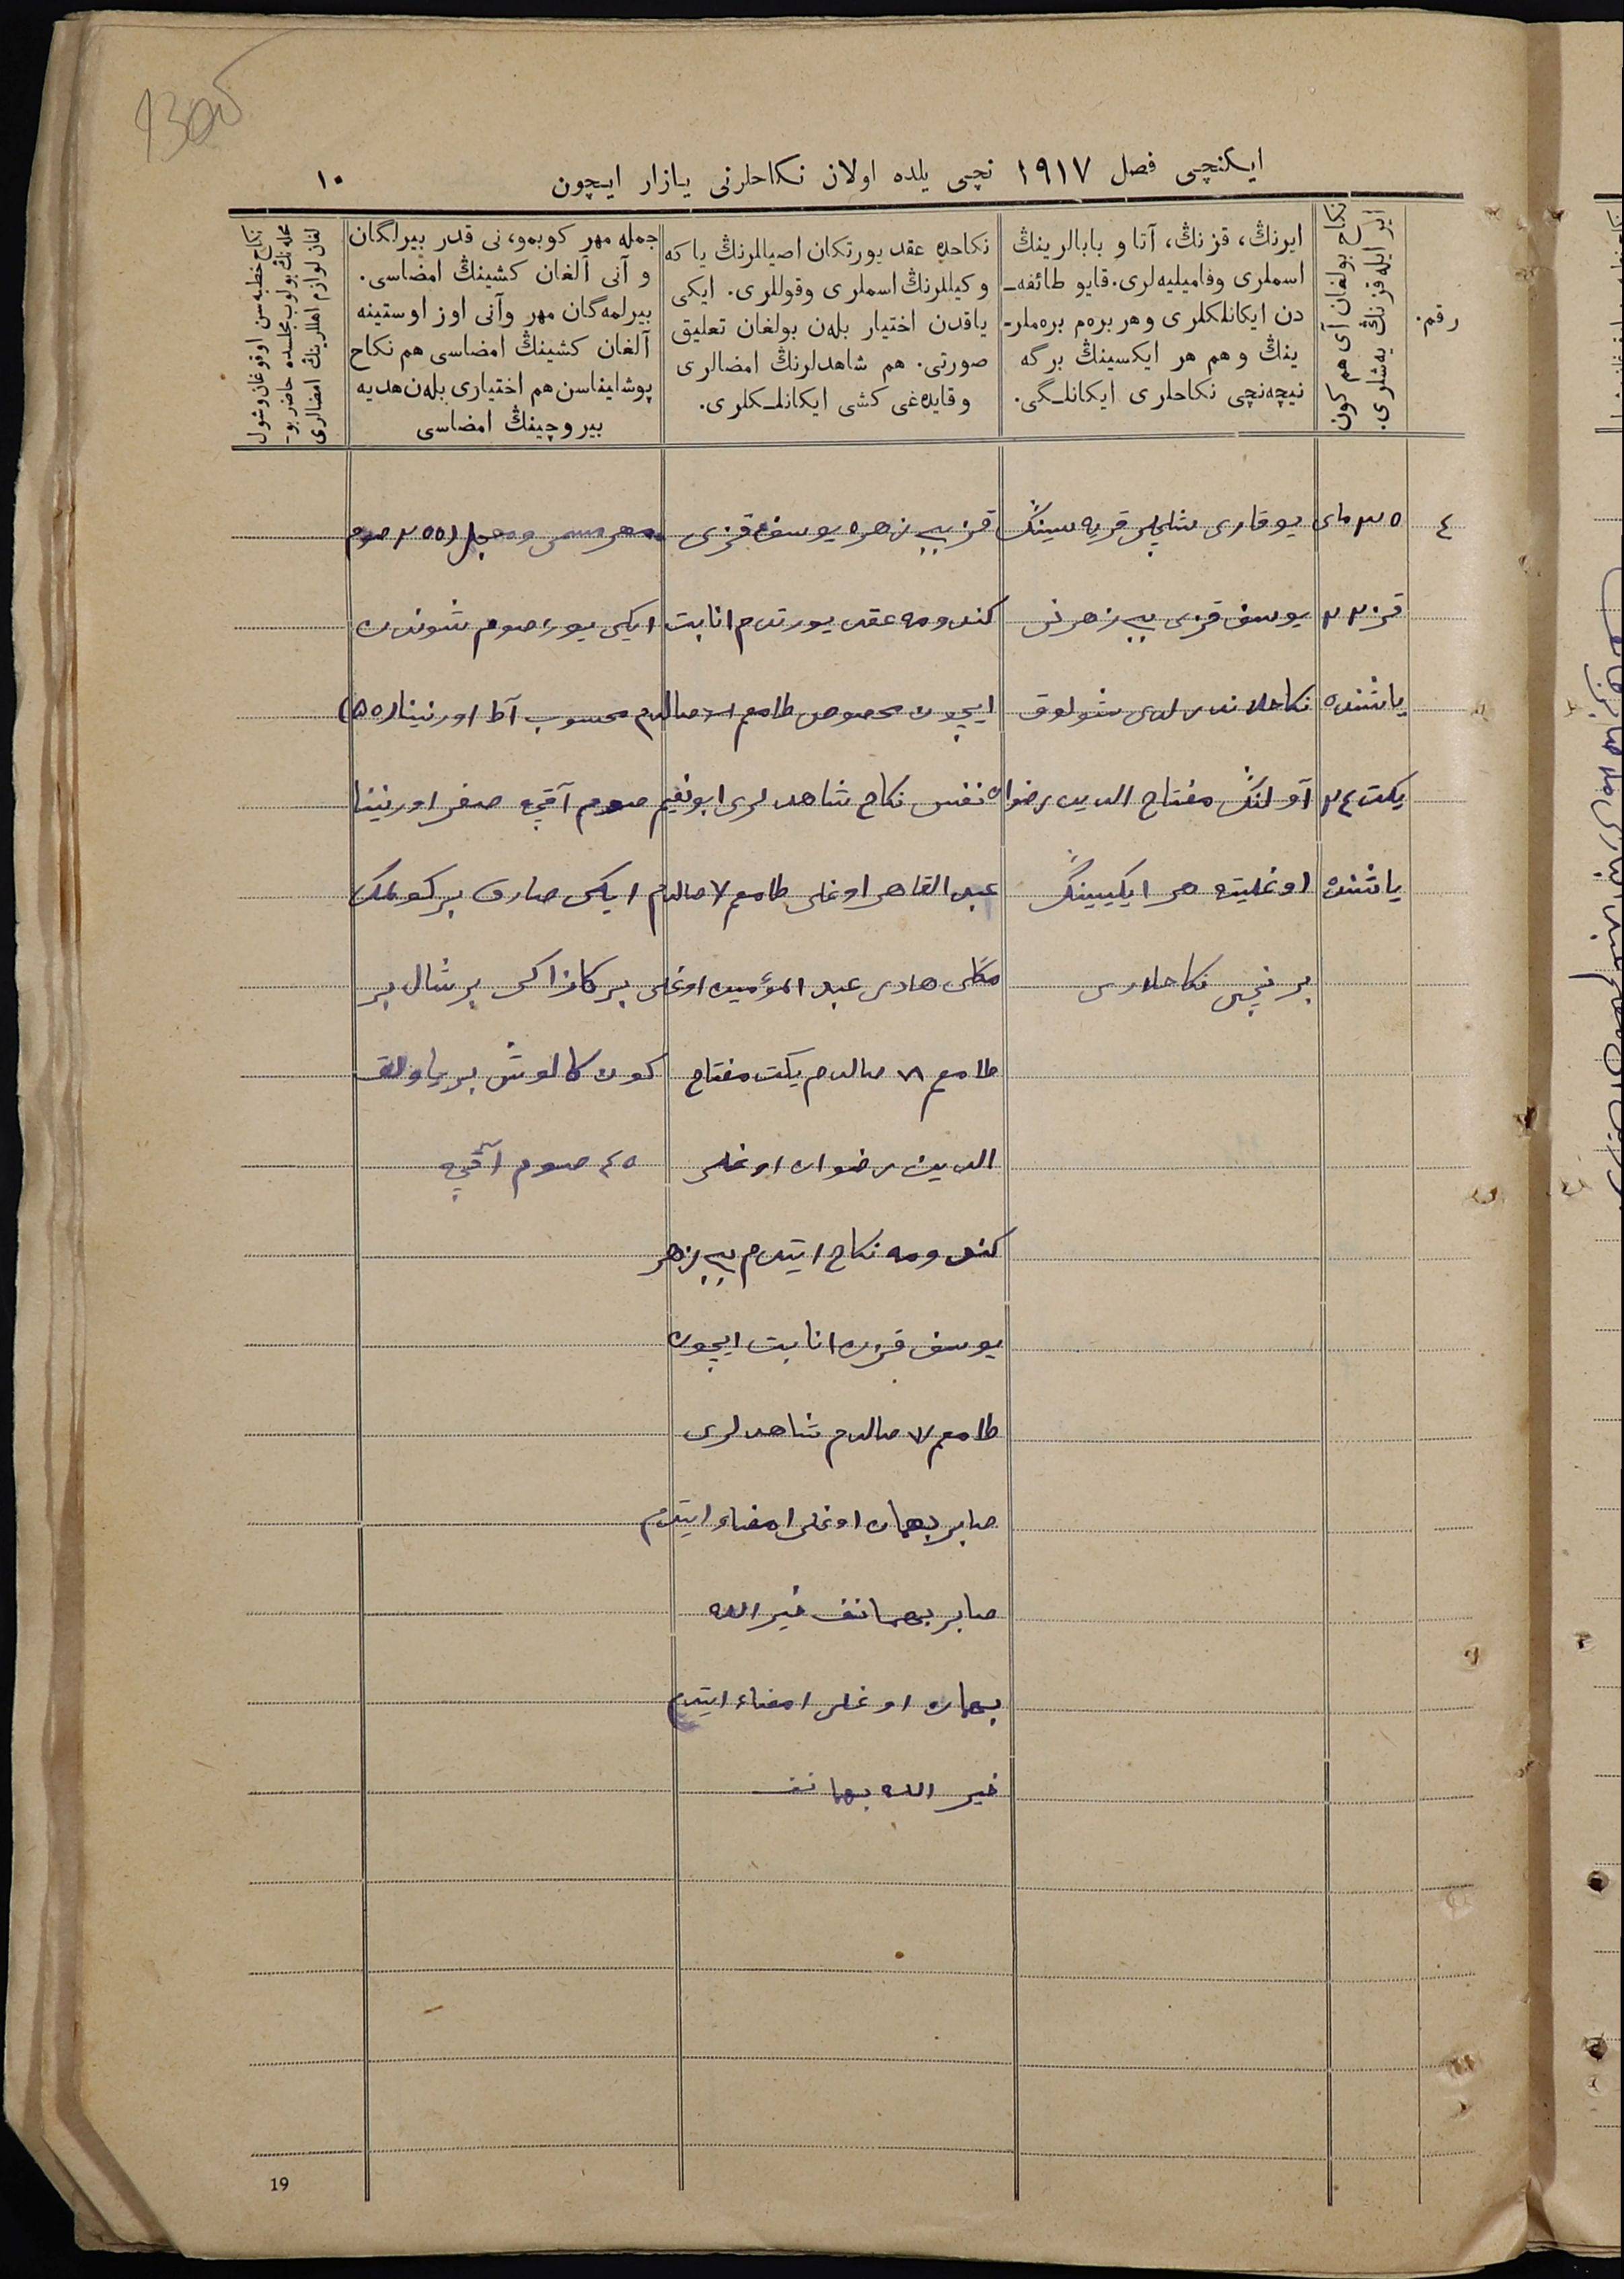 1305
ایکنچی فصل ١٩١٧ نچی یلده اولان نکاحلرنی یازار ایچون
١٠
رقم.
نکاح بولغان آی هم کون
ایر ایله قزنڭ یەشلری.
ایرنڭ، قزنڭ، آتا و بابالرینڭ
اسملری وفامیلیه‌لری. قایو طائفه‌ـ
دن ایکانلکلری و هر برەم برەملرـ
ینڭ و هم هر ایکسینڭ برگه
نیچەنچی نکاحلری ایکانلـگی.
نکاحده عقد یورتکان اصیاللرنڭ یا که
وکیللرنڭ اسملری وقوللری. ایکی
یاقدن اختیار بلەن بولغان تعلیق
صورتی. هم شاهدلرنڭ امضالری
وقایدەغی کشی ایکانلـکلری.
جمله مهر کوبمو، نی قدر بیرلگان
و آنی آلغان کشینڭ امضاسی.
بیرلمەگان مهر وآنی اوز اوستینه
آلغان کشینڭ امضاسی هم نکاح
پوشلیناسن هم اختیاری بلەن هدیه
بیروچینڭ امضاسی
نکاح خطبەسن اوقوغان وشول
محلەنڭ بولوب مجلسده حاضر بوـ
لغان لوازم اهللرینڭ امضالری
٤
٢٥ مای
قز ٢٢
یاشنده
یکت ٢٤
یاشنده
یوقاری شلچلی قریه سینڭ
یوسف قزی بی بی زهرنی
نکاحلاندرلدی شولوق
آولنڭ مفتاح الدین رضوان
اوغلینه هر ایکیسینڭ
برنچی نکاحلاری
قز بی بی زهره یوسف قزی
کندومه عقد یورتدم انابت
ایچون مخصوص طامغم صالدم
نفس نکاح شاهدلری ابونعیم
عبدالقاهر اوغلی طامغم ٧ صالدم
مکی هادی عبدالمؤمین اوغلی
طامغم ٨١ صالدم یکت مفتاح
الدین رضوان اوغلی
کندومه نکاح ایتدم بی بی زهر
یوسف قزن انابت ایچون
طامغم ٧ صالدم شاهدلری
صابر بهمان اوغلی امضاء ایتدم
صابر بهمانف خیرالله
بهمان اوغلی امضاء ایتدم
خیرالله بهمانف
مهر مسمی ومعجل (٢٠٠) صوم
ایکی یوز صوم شوندن
محسوب آط اورنینا (٥٠)
صوم آقچه صغر اورنینا
ایکی صارق بر کولمک
بر کازاکی بر شال بر
کون کالوش بر یاولق
٤٥ صوم آقچه
19